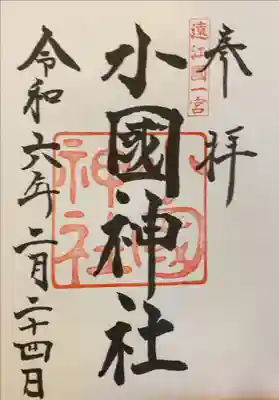 奉拝
遠江國一宮
小國神社
令和六年二月二十四日